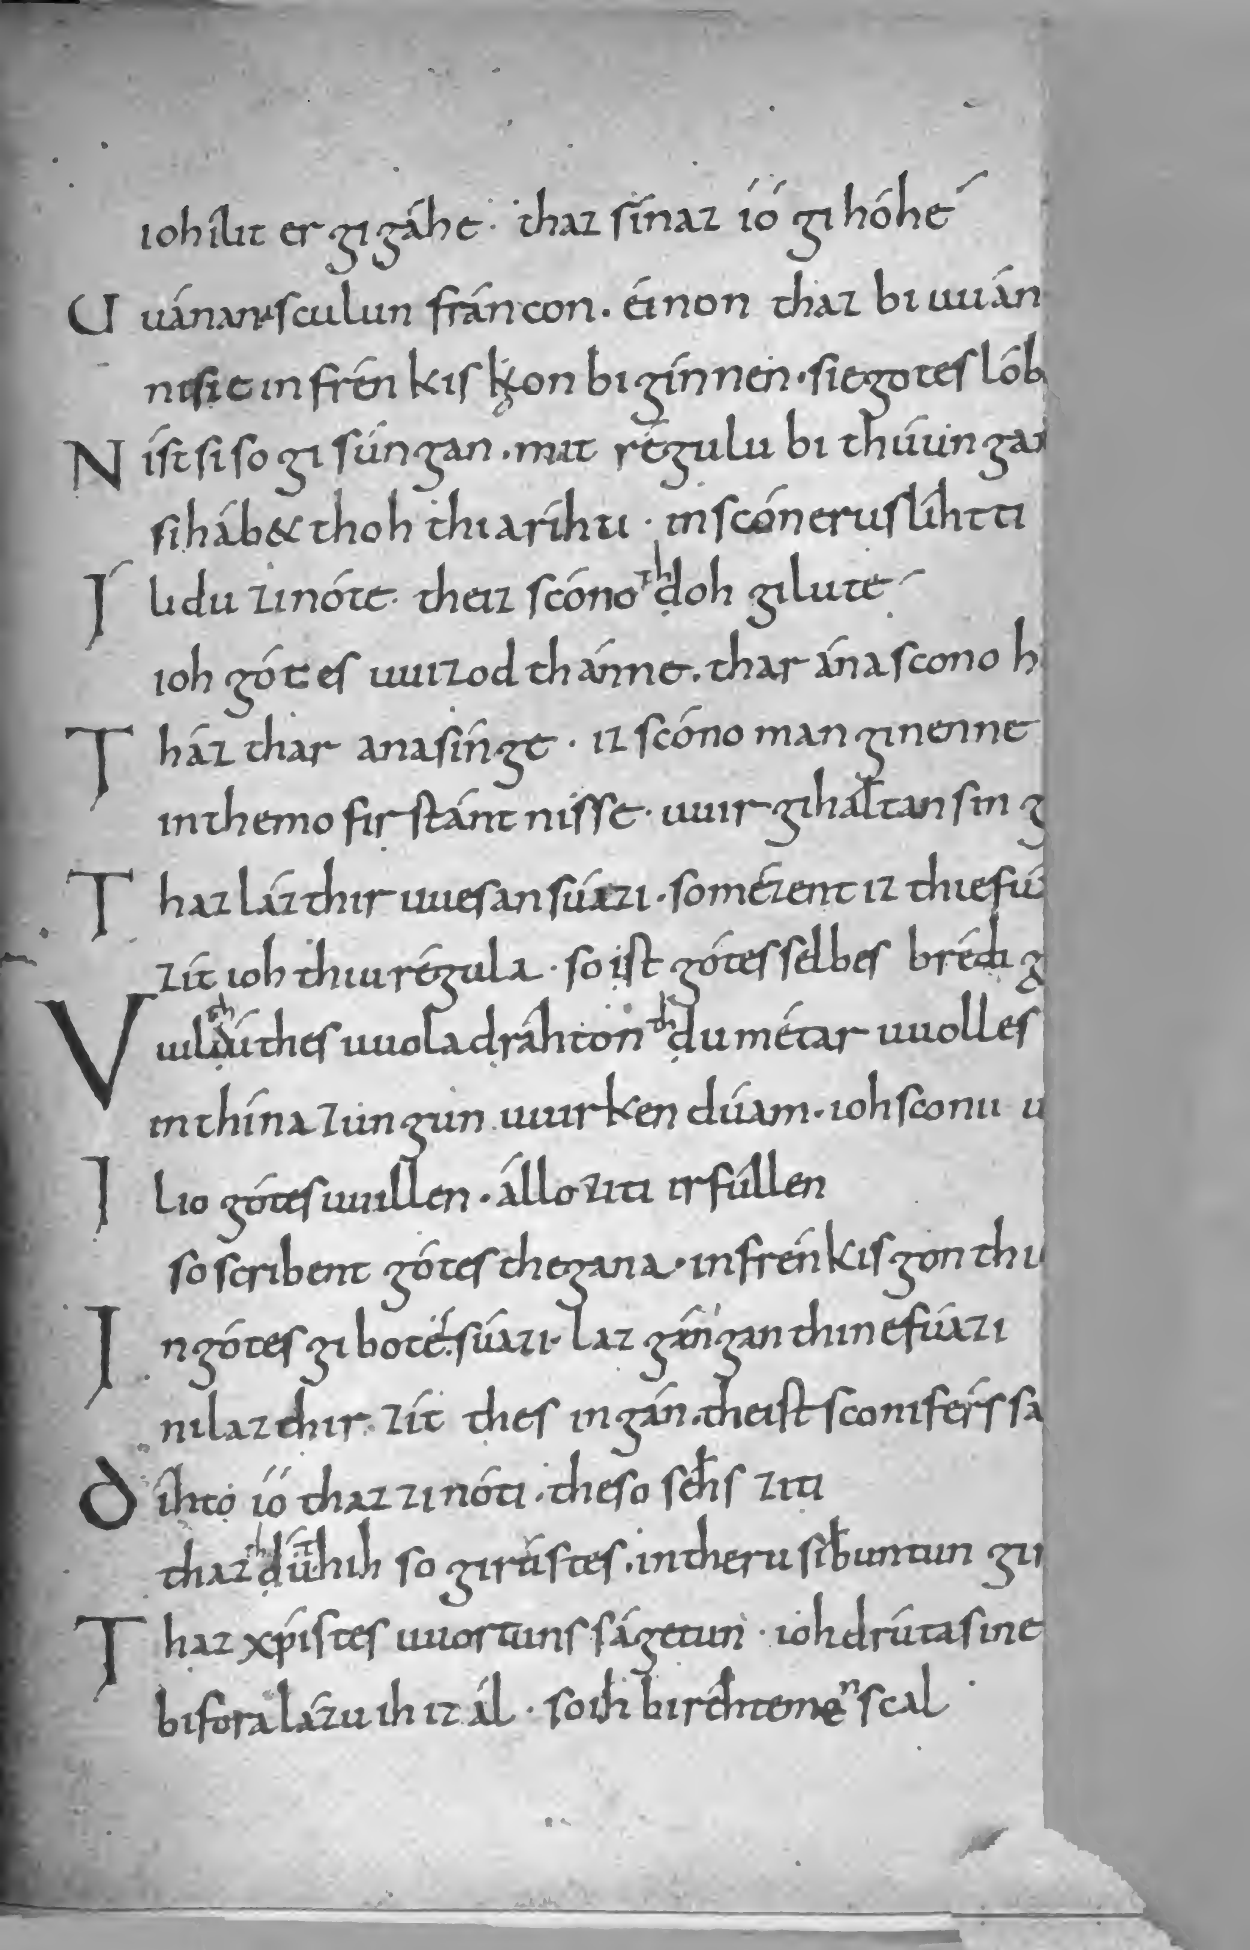 ioh ilit er gigáhe· thaz sínaz íó gihóhe
Uuánana sculun fráncon· éinon thaz biuuán
ni sie in frénkiskon biginnen· sie gotes lób
Níst si so gisúngan· mit régulu bithúuinga
si hábet thoh thia ríhti· in scóneru slíhti
Íli du zi nóte· theiz scóno thoh gilute
ioh gótes uuizod thánne· thar ána scono h
Tház thar ana sínge· iz scóno man ginenne
in themo firstántnisse· uuir gihaltan sin g
Thaz láz thir uuesan súazi· so mézent iz thie fú
zít ioh thiu régula· so ist gótes selbes brédi g
Vuil thú thes uuola dráhton· thu métar uuolles
in thína zúngun uuirken dúam· ioh sconu u
Ilio gótes uuillen· állo ziti irfúllen
so scribent gótes thegana· in frénkisgon thi
In gótes gibote súazi· laz gángan thine fúazi
ni laz thir zít thes ingán· theist sconi férs sa
Dihto íó thaz zi nóti· theso sehs ziti
thaz thú thih so girústes· in theru sibuntun gi
Thaz xpístes uuort uns ságetun· ioh drúta sine
bifora lázu ih iz ál· so ih bi rehtemen scal